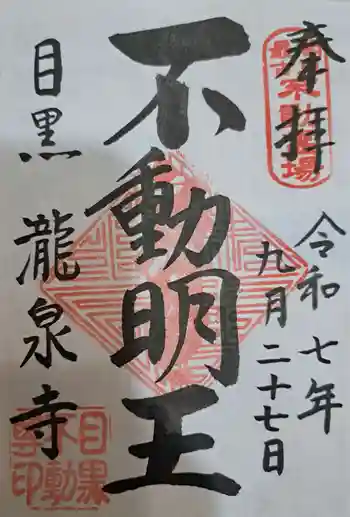 奉拝
令和七年
九月二十七日
不動明王
目黒
瀧泉寺
目黒
不動
印